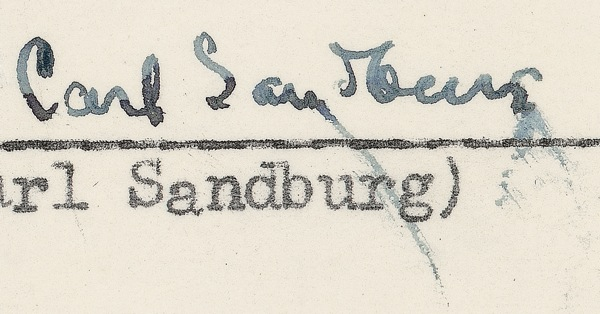 Carl Sandburg
arl Sandburg)